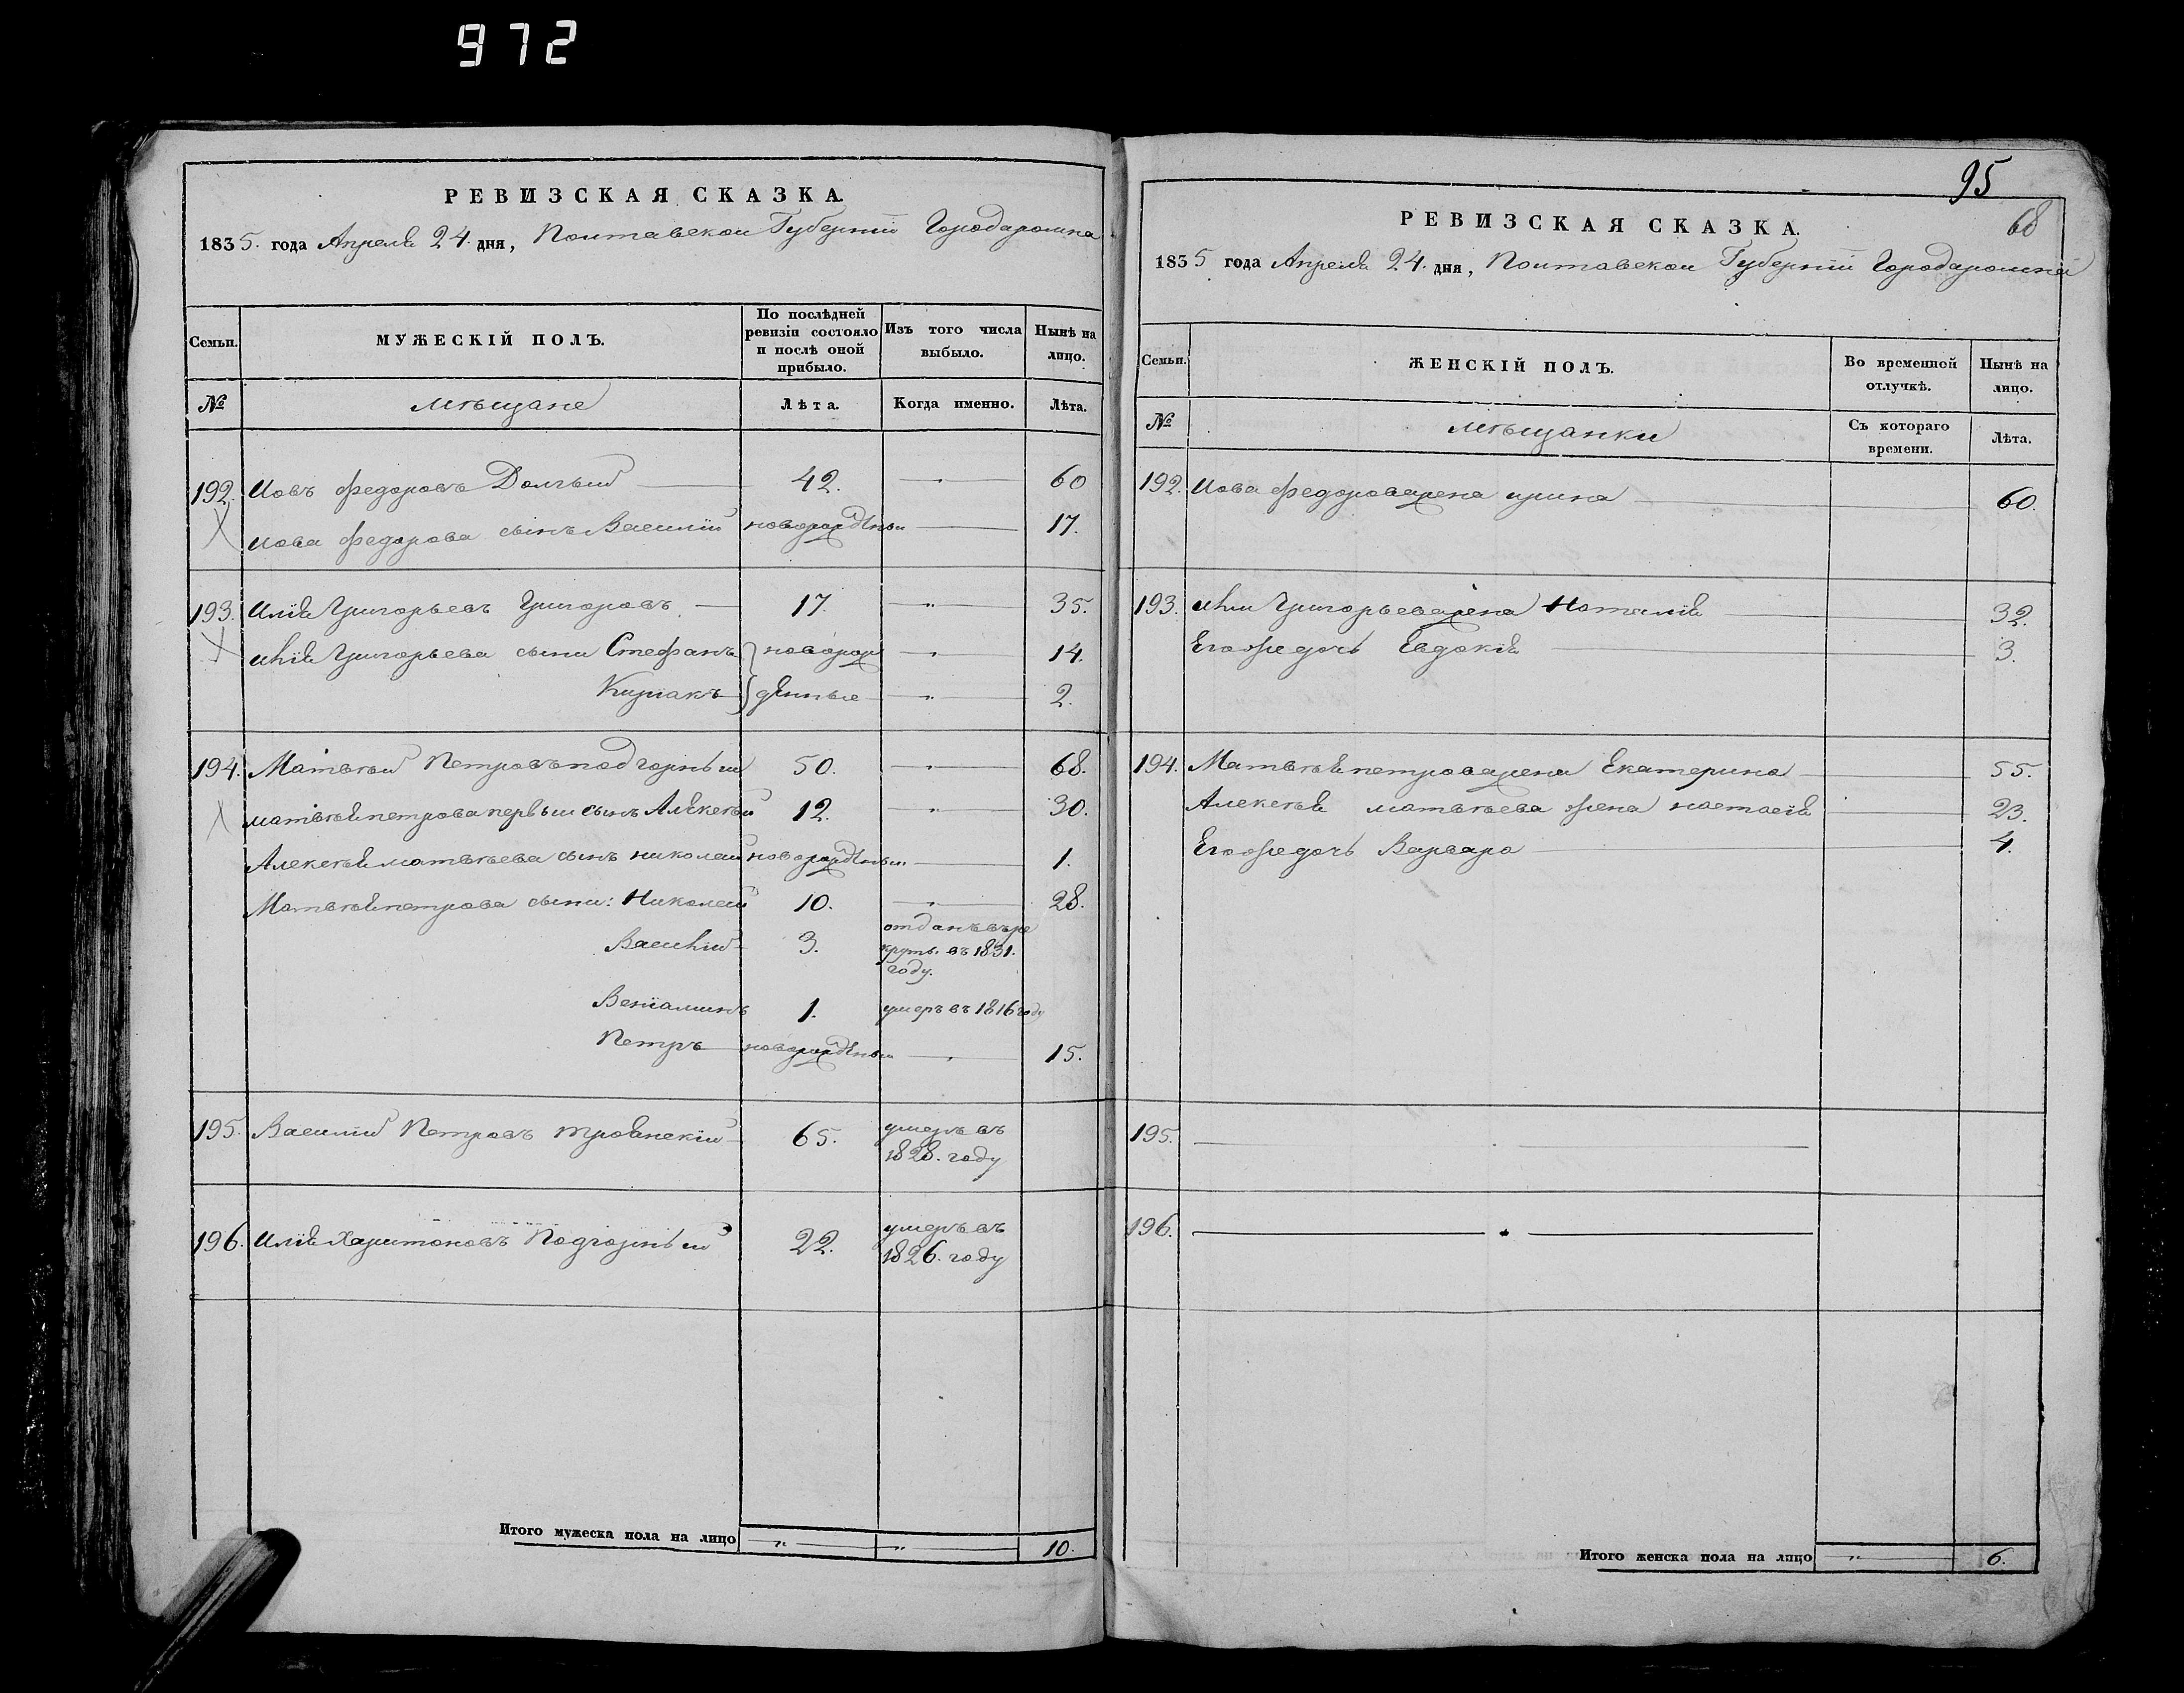 972
РЕВИЗСКАЯ СКАЗКА.
1835. года Апреля 24. дня, Полтавской Губерніи Города ромна
Семьи.
МУЖЕСКІЙ ПОЛЪ.
По послѣдней ревизіи состояло и послѣ оной прибыло.
Изъ того числа выбыло.
Нынѣ на лицо.
№
Мѣщане
Лѣта.
Когда именно.
Лѣта.
192. Иовъ федоровъ Долгый 42. — " — 60
Иова федорова сынъ Василій новорожденый — 17.
193. Илія Григорьевъ Григоровъ 17. — " — 35.
Илія Григорьева сыни Стефанъ } новорож — " — 14.
Кириакъ } денные — " — 2.
194. Матвѣй Петровъ подгорный 50. — " — 68.
матвѣя петрова первый сынъ Алексѣй 12. — " — 30.
Алексѣя матвѣева сынъ николай новорожденый. — 1.
Матвѣя петрова сыни: Николай 10. — " — 28.
Василій 3. отданъ въ ре
круты. въ 1831.
году.
Веніаминъ 1. умеръ въ 1816 году
Петръ новорожденый — " — 15.
195. Василій Петровъ троянскій 65. умеръ въ
1828. году
196. Илія Харитоновъ Подгорный 22. умеръ въ
1826. году
Итого мужеска пола на лицо — " — — " — 10.
95
68
РЕВИЗСКАЯ СКАЗКА.
1835 года Апреля 24. дня, Полтавской Губерніи Города ромна
Семьи.
ЖЕНСКІЙ ПОЛЪ.
Во временной отлучкѣ.
Нынѣ на лицо.
№
Мѣщанки
Съ котораго времени.
Лѣта.
192. Иова федорова жена ирина 60.
193. Иліи Григорьева жена Наталія 32.
Егоже дочь Евдокія 3.
194. Матвѣя петрова жена Екатерина 55.
Алексѣя матвѣева жена настасія 23.
Егоже дочь Варвара 4.
195.
196.
Итого женска пола на лицо — " — 6.